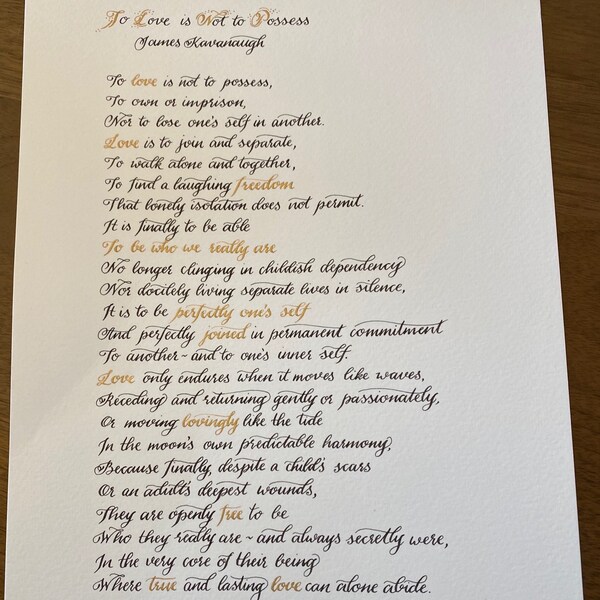 To Love is Not to Possess
James Kavanaugh
To love is not to possess,
To own or imprison,
Nor to lose one's self in another.
Love is to join and separate,
To walk alone and together,
To find a laughing freedom
That lonely isolation does not permit.
It is finally to be able
To be who we really are
No longer clinging in childish dependency
Nor docilely living separate lives in silence,
It is to be perfectly one's self
And perfectly joined in permanent commitment
To another~and to one's inner self.
Love only endures when it moves like waves,
Receding and returning gently or passionately,
Or moving lovingly like the tide
In the moon's own predictable harmony,
Because finally, despite a child's scars
Or an adult's deepest wounds,
They are openly free to be
Who they really are~and always secretly were,
In the very core of their being
Where true and lasting love can alone abide.